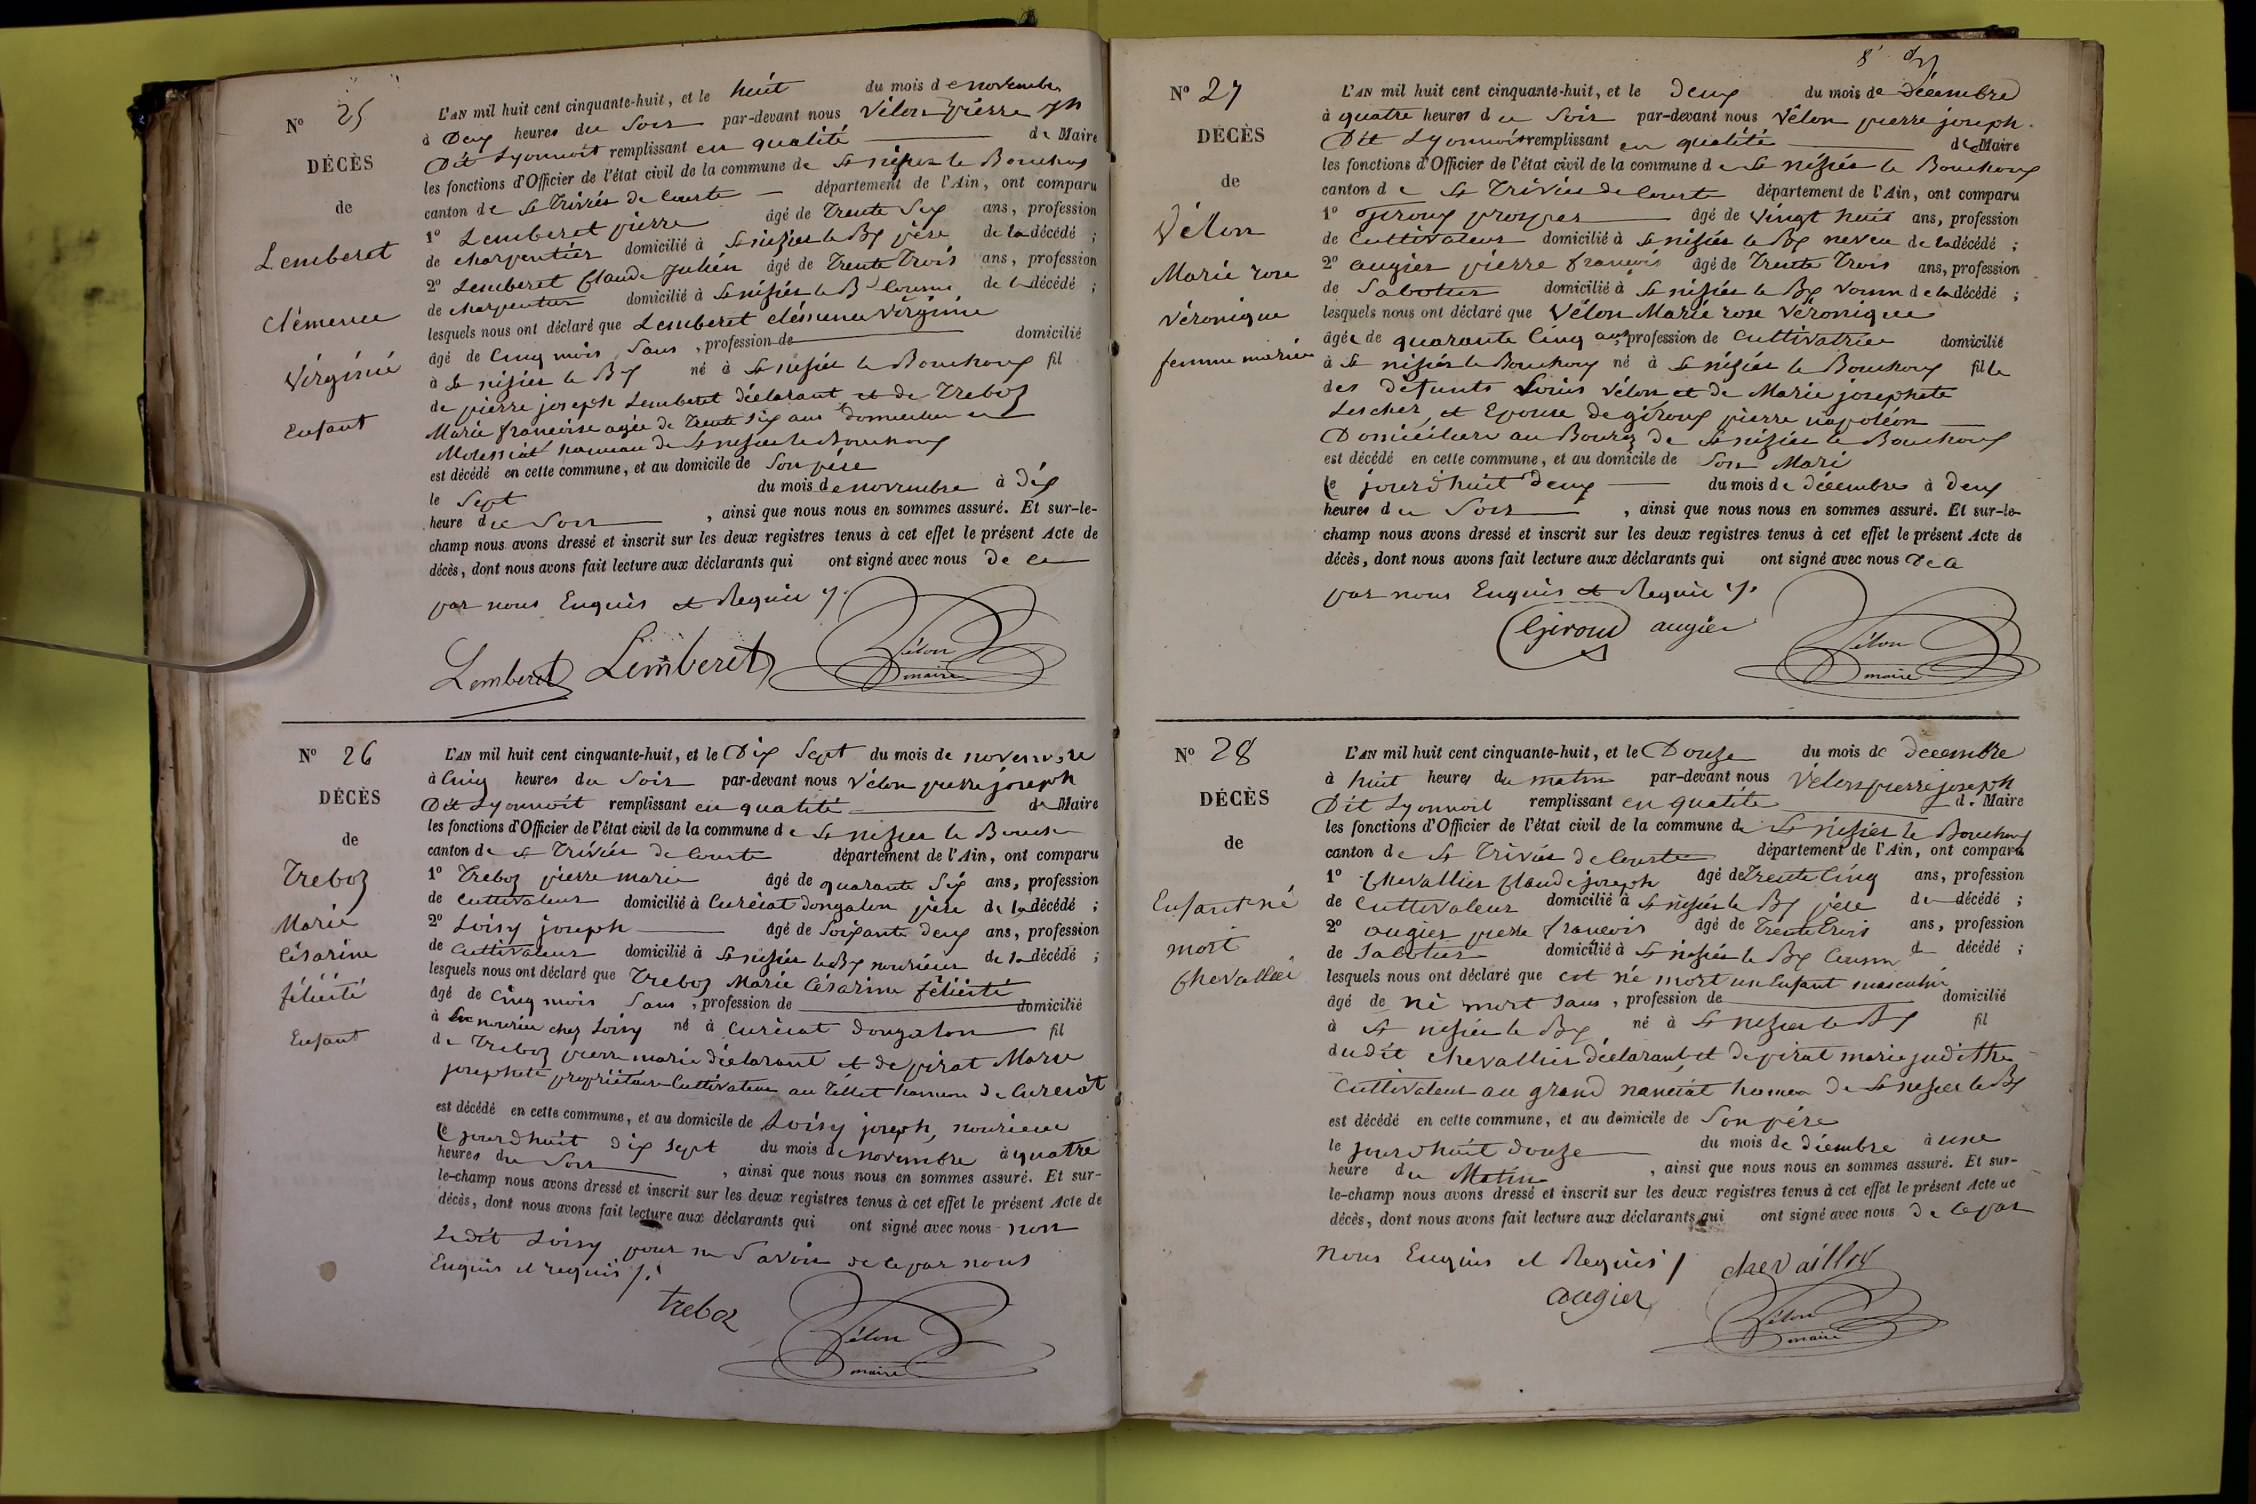 N° 25
DÉCÈS
de
Lemberet
Clémence
Virginie
Enfant
L'AN mil huit cent cinquante-huit, et le huit du mois de novembre
à Deux heures du Soir par-devant nous Vélon pierre jph
Dit Lyonnoit remplissant en qualité de Maire
les fonctions d'Officier de l'état civil de la commune de St nisier le Bouchoux
canton de St Trivier de Courte département de l'Ain, ont comparu
1° Lemberet pierre âgé de Trente Six ans, profession
de charpentier domicilié à St nisier le Bx père de la décédé ;
2° Lemberet Claude Julien âgé de Trente Trois ans, profession
de charpentier domicilié à St nisier le Bx Cousin de la décédé ;
lesquels nous ont déclaré que Lemberet clémence Virginie
âgé de Cinq mois Sans, profession de domicilié
à St nisier le Bx né à St nisier le Bouchoux fil
de pierre joseph Lemberet déclarant et de Treboz
Marie francoise agée de Trente Six ans domicilier en
Molessiat hameau de St nisier le Bouchoux
est décédé en cette commune, et au domicile de Son père
le Sept du mois de novembre à dix
heure du Soir, ainsi que nous nous en sommes assuré. Et sur-le-
champ nous avons dressé et inscrit sur les deux registres tenus à cet effet le présent Acte de
décès, dont nous avons fait lecture aux déclarants qui ont signé avec nous de ce
par nous Enquis et Requis ./.
Lemberet Lemberet Vélon
maire
N° 26
DÉCÈS
de
Treboz
Marie
Césarine
félicité
Enfant
L'AN mil huit cent cinquante-huit, et le Dix Sept du mois de novembre
à Cinq heures du Soir par-devant nous Vélon pierre joseph
Dit Lyonnoit remplissant en qualité de Maire
les fonctions d'Officier de l'état civil de la commune de St nisier le Bouch
canton de St Trivier de Courte département de l'Ain, ont comparu
1° Treboz pierre marie âgé de quarante Six ans, profession
de Cultivateur domicilié à Curciat dongalon père de la décédé ;
2° Loisy joseph âgé de Soixante deux ans, profession
de Cultivateur domicilié à St nisier le Bx nouricier de la décédé ;
lesquels nous ont déclaré que Treboz Marie Césarine félicité
âgé de Cinq mois Sans, profession de domicilié
à En nourice chez Loisy né à Curciat dongalon fil
de Treboz pierre marie déclarant et de pirat Marie
josephete propriétaire Cultivateur au Tillet hameau de Curciat
est décédé en cette commune, et au domicile de Loisy joseph, nouricier
le jourdhuit dix sept du mois de novembre à quatre
heures du Soir, ainsi que nous nous en sommes assuré. Et sur-
le-champ nous avons dressé et inscrit sur les deux registres tenus à cet effet le présent Acte de
décès, dont nous avons fait lecture aux déclarants qui ont signé avec nous non
Ledit Loisy pour ne Savoir de ce par nous
Enquis et requis ./.
treboz Vélon
maire
8
N° 27
DÉCÈS
de
Vélon
Marie rose
Véronique
femme mariée
L'AN mil huit cent cinquante-huit, et le deux du mois de Décembre
à quatre heures du Soir par-devant nous Vélon pierre joseph
Dit Lyonnoit remplissant en qualité de Maire
les fonctions d'Officier de l'état civil de la commune de St nisier le Bouchoux
canton de St Trivier de Courte département de l'Ain, ont comparu
1° Giroux prosper âgé de vingt huit ans, profession
de Cultivateur domicilié à St nisier le Bx neveu de la décédé ;
2° augier pierre francois âgé de Trente Trois ans, profession
de Sabotier domicilié à St nisier le Bx voisin de la décédé ;
lesquels nous ont déclaré que Vélon Marie rose Véronique
âgée de quarante Cinq ans, profession de Cultivatrice domicilié
à St nisier le Bouchoux né à St nisier le Bouchoux fille
des défunts Louis Vélon et de Marie josephete
Lescher, et Epouse de giroux pierre napoléon
Domiciliere au Bourg de St nizier le Bouchoux
est décédé en cette commune, et au domicile de Son Mari
le jourdhuit deux du mois de décembre à deux
heures du Soir, ainsi que nous nous en sommes assuré. Et sur-le-
champ nous avons dressé et inscrit sur les deux registres tenus à cet effet le présent Acte de
décès, dont nous avons fait lecture aux déclarants qui ont signé avec nous de ce
par nous Enquis et Requis ./.
Giroud augier Vélon
maire
N° 28
DÉCÈS
de
Enfant né
mort
Chevallier
L'AN mil huit cent cinquante-huit, et le Douze du mois de décembre
à huit heures du matin par-devant nous Vélon pierre joseph
Dit Lyonnoit remplissant en qualité de Maire
les fonctions d'Officier de l'état civil de la commune de St nisier le Bouchoux
canton de St Trivier de Courte département de l'Ain, ont comparu
1° Chevallier Claude joseph âgé de Trente Cinq ans, profession
de Cultivateur domicilié à St nisier le Bx père du décédé ;
2° augier pierre francois âgé de Trente Trois ans, profession
de Sabotier domicilié à St nisier le Bx Cousin du décédé ;
lesquels nous ont déclaré que est né mort un Enfant masculin
âgé de né mort Sans, profession de domicilié
à St nisier le Bx né à St nisier le Bx fil
dudit chevallier déclarant et de pirat marie judithe
Cultivateur au grand nanciat hameau de St nisier le Bx
est décédé en cette commune, et au domicile de Son père
le jourdhuit douze du mois de décembre à une
heure du Matin, ainsi que nous nous en sommes assuré. Et sur-
le-champ nous avons dressé et inscrit sur les deux registres tenus à cet effet le présent Acte de
décès, dont nous avons fait lecture aux déclarants qui ont signé avec nous de ce par
nous Enquis et Requis ./. chevaillier
augier Vélon
maire